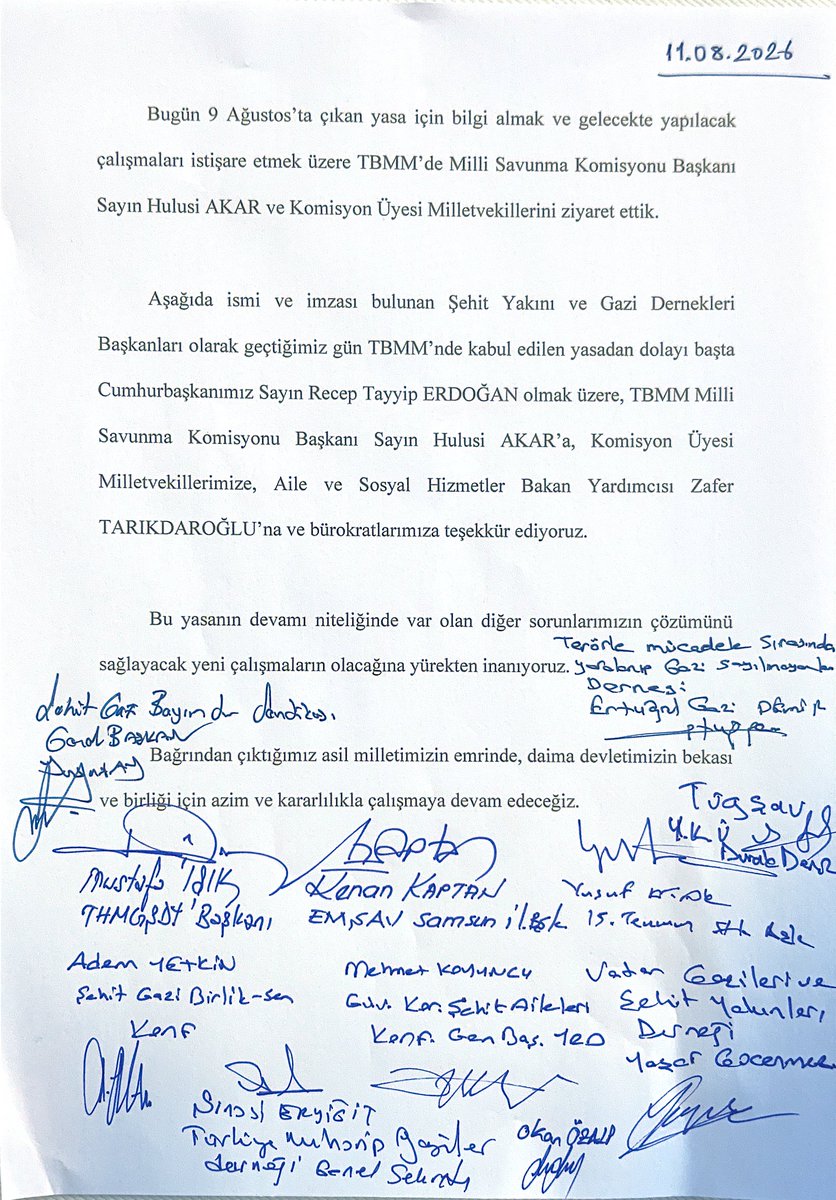 11.08.2026
Bugün 9 Ağustos’ta çıkan yasa için bilgi almak ve gelecekte yapılacak
çalışmaları istişare etmek üzere TBMM’de Milli Savunma Komisyonu Başkanı
Sayın Hulusi AKAR ve Komisyon Üyesi Milletvekillerini ziyaret ettik.
Aşağıda ismi ve imzası bulunan Şehit Yakını ve Gazi Dernekleri
Başkanları olarak geçtiğimiz gün TBMM’nde kabul edilen yasadan dolayı başta
Cumhurbaşkanımız Sayın Recep Tayyip ERDOĞAN olmak üzere, TBMM Milli
Savunma Komisyonu Başkanı Sayın Hulusi AKAR’a, Komisyon Üyesi
Milletvekillerimize, Aile ve Sosyal Hizmetler Bakan Yardımcısı Zafer
TARIKDAROĞLU’na ve bürokratlarımıza teşekkür ediyoruz.
Bu yasanın devamı niteliğinde var olan diğer sorunlarımızın çözümünü
sağlayacak yeni çalışmaların olacağına yürekten inanıyoruz.
Terörle mücadele Sırasında
Gazi sayılmayanlar
Derneği
Ertuğrul Gazi DEMİR
Şehit Gazi
Genel BAŞKAN
Bağrından çıktığımız asil milletimizin emrinde, daima devletimizin bekası
ve birliği için azim ve kararlılıkla çalışmaya devam edeceğiz.
Tügşav
Y.K.Ü
Mustafa IŞIK
Başkanı
Kenan KAPTAN
EMŞAV Samsun il Bşk
Yusuf
15. Temmuz
Adem YETKİN
Şehit Gazi Birlik-sen
Konf
Mehmet KOYUNCU
Güv. Kor. Şehit Aileleri
Konf. Gen Baş.
Vatan Gazileri ve
Şehit Yakınları
Derneği
Yaşar
Sinasi ERYİĞİT
Türkiye Muharip Gaziler
derneği Genel Sekreteri
Okan ÖZALP